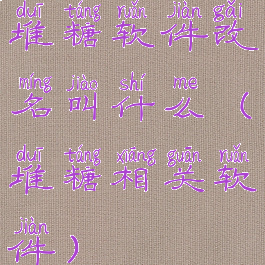 duī táng ruǎn jiàn gǎi
堆糖软件改
míng jiào shí me
名叫什么（
duī táng xiāng guān ruǎn
堆糖相关软
jiàn
件）